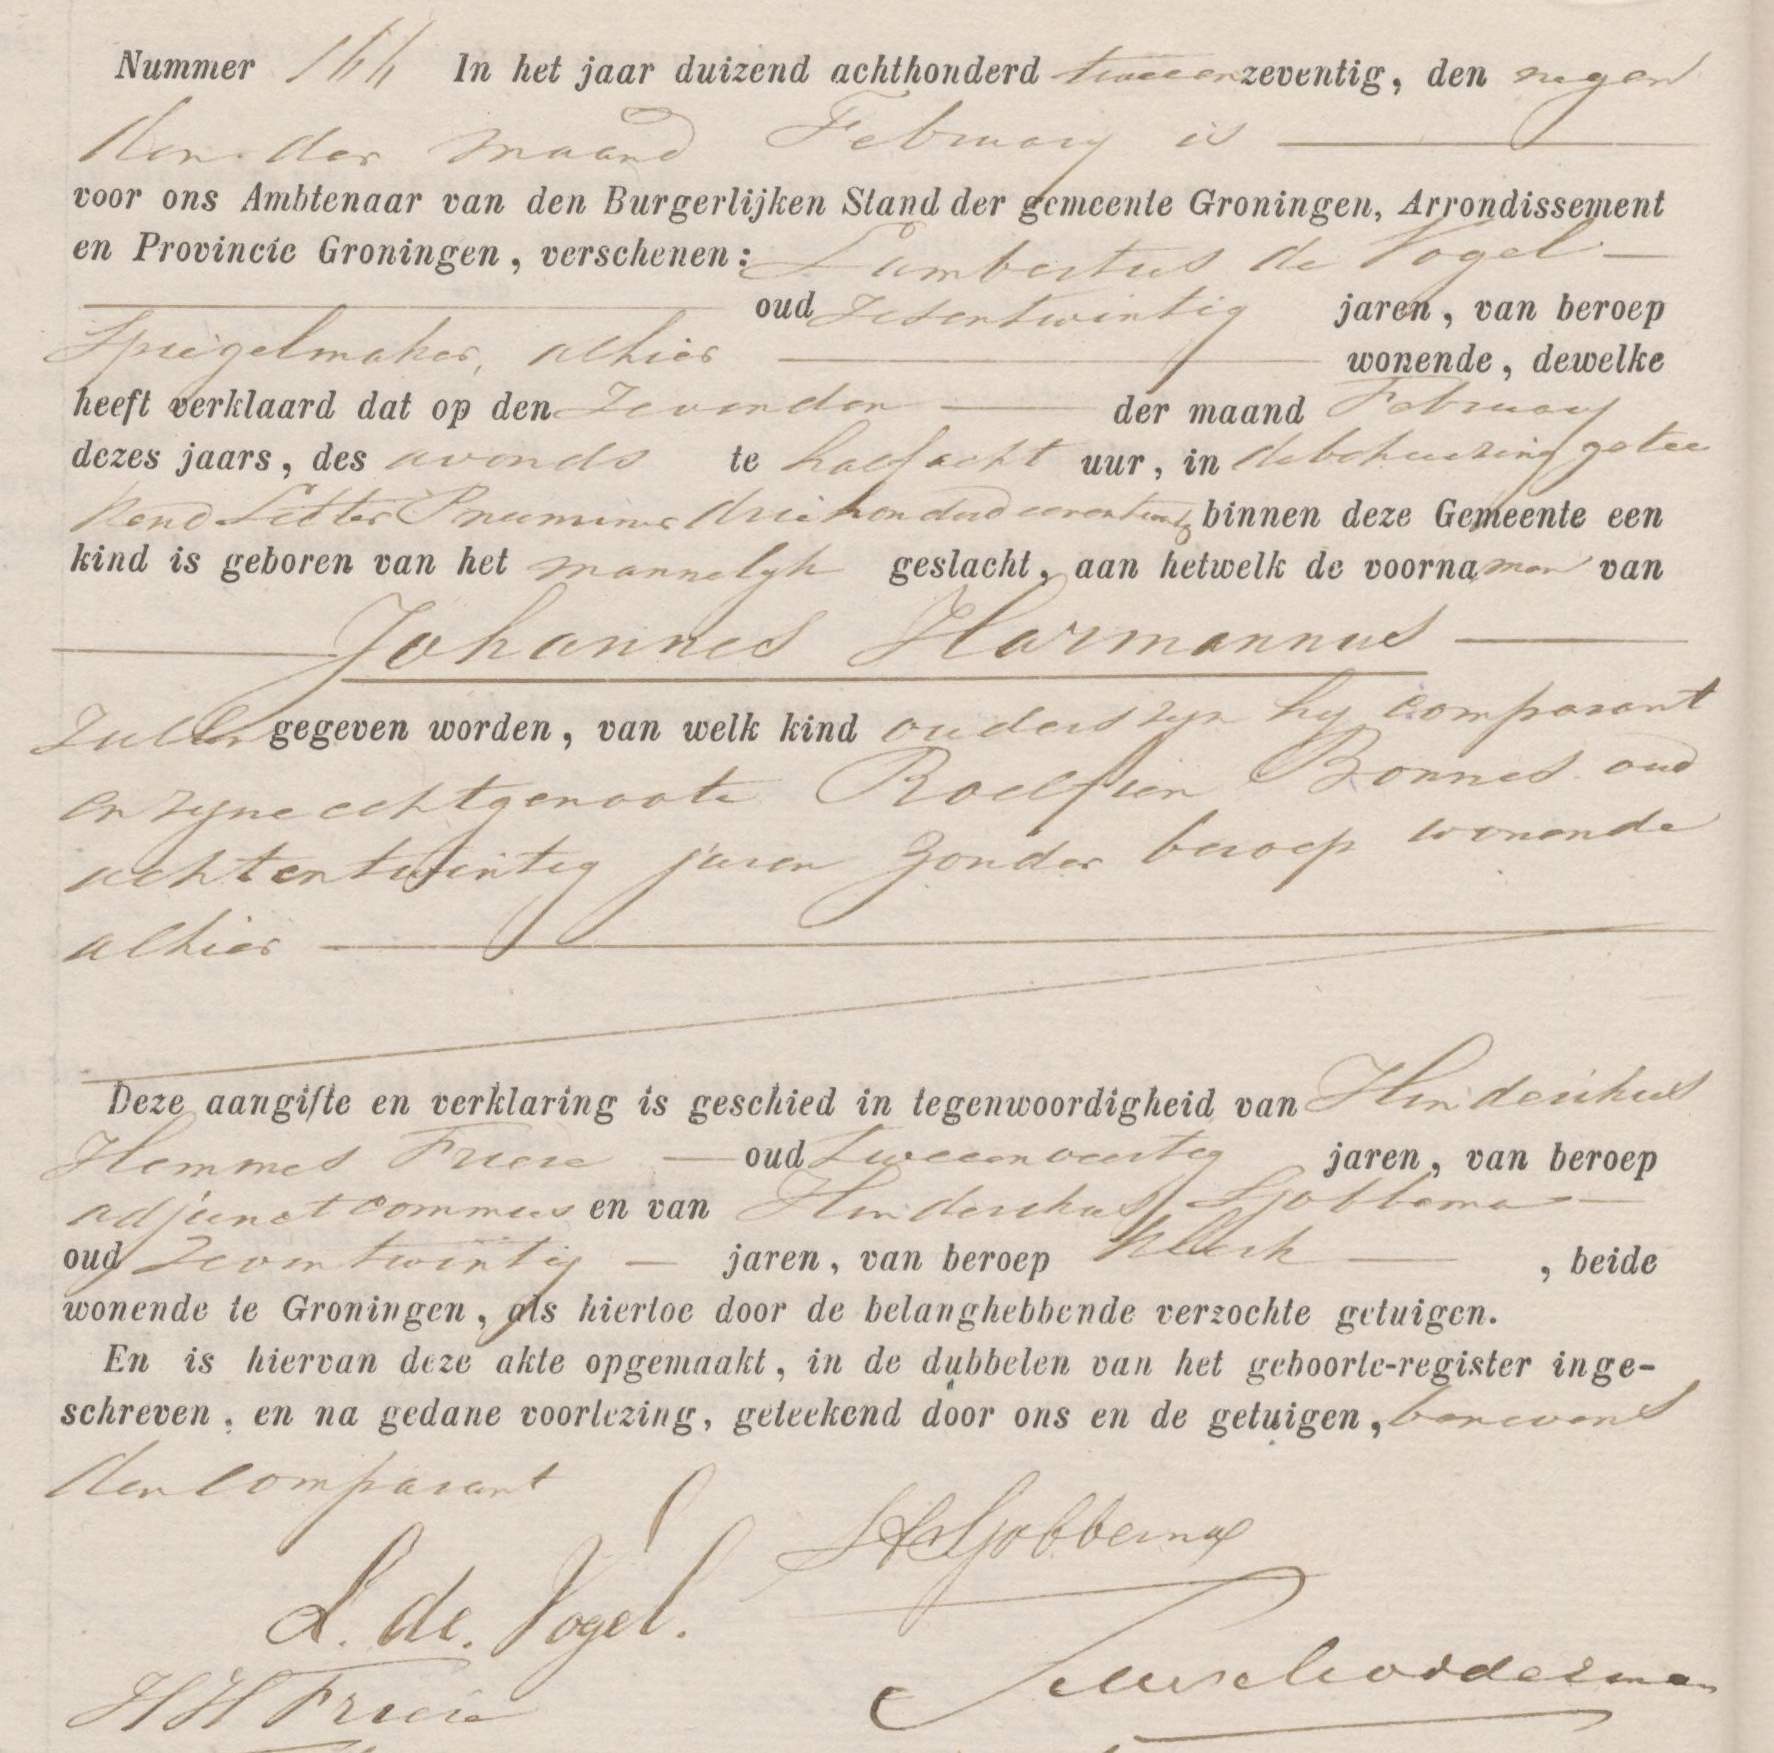 Nummer 144 In het jaar duizend achthonderd tweeenzeventig, den negen
den der maand February is
voor ons Ambtenaar van den Burgerlijken Stand der gemeente Groningen, Arrondissement
en Provincie Groningen, verschenen: Lambertus de Vogel
oud zesentwintig jaren, van beroep
Spiegelmaker, alhier wonende, dewelke
heeft verklaard dat op den zevenden der maand February
dezes jaars, des avonds te half acht uur, in de behuizing getee
kend Letter P nummer driehonderd eenentwintig binnen deze Gemeente een
kind is geboren van het mannelyk geslacht, aan hetwelk de voornamen van
Johannes Harmannus
zullen gegeven worden, van welk kind ouders zyn hy comparant
en zyne echtgenoote Roelfien Bonnes oud
achtentwintig jaren zonder beroep wonende
alhier
Deze aangifte en verklaring is geschied in tegenwoordigheid van Hinderikus
Hemmes Friese oud tweeenveertig jaren, van beroep
adjunct commies en van Hinderikus Sjobbema
oud zeventwintig jaren, van beroep klerk, beide
wonende te Groningen, als hiertoe door de belanghebbende verzochte getuigen.
En is hiervan deze akte opgemaakt, in de dubbelen van het geboorte-register inge-
schreven, en na gedane voorlezing, geteekend door ons en de getuigen, benevens
den comparant
HSjobbema
L. de Vogel.
HH Friese